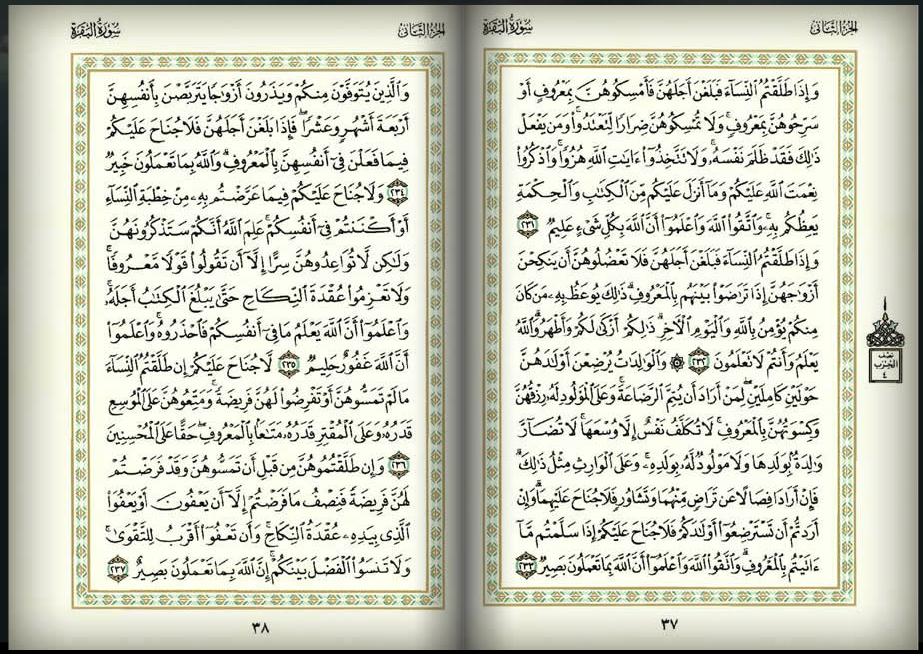 الجزء الثاني
سورة البقرة
وَإِذَا طَلَّقْتُمُ ٱلنِّسَآءَ فَبَلَغْنَ أَجَلَهُنَّ فَأَمْسِكُوهُنَّ بِمَعْرُوفٍ أَوْ
سَرِّحُوهُنَّ بِمَعْرُوفٍ ۚ وَلَا تُمْسِكُوهُنَّ ضِرَارًا لِّتَعْتَدُوا۟ ۚ وَمَن يَفْعَلْ
ذَٰلِكَ فَقَدْ ظَلَمَ نَفْسَهُۥ ۚ وَلَا تَتَّخِذُوٓا۟ ءَايَٰتِ ٱللَّهِ هُزُوًا ۚ وَٱذْكُرُوا۟
نِعْمَتَ ٱللَّهِ عَلَيْكُمْ وَمَآ أَنزَلَ عَلَيْكُم مِّنَ ٱلْكِتَٰبِ وَٱلْحِكْمَةِ
يَعِظُكُم بِهِۦ ۚ وَٱتَّقُوا۟ ٱللَّهَ وَٱعْلَمُوٓا۟ أَنَّ ٱللَّهَ بِكُلِّ شَىْءٍ عَلِيمٌ ٢٣١
وَإِذَا طَلَّقْتُمُ ٱلنِّسَآءَ فَبَلَغْنَ أَجَلَهُنَّ فَلَا تَعْضُلُوهُنَّ أَن يَنكِحْنَ
أَزْوَٰجَهُنَّ إِذَا تَرَٰضَوْا۟ بَيْنَهُم بِٱلْمَعْرُوفِ ۗ ذَٰلِكَ يُوعَظُ بِهِۦ مَن كَانَ
مِنكُمْ يُؤْمِنُ بِٱللَّهِ وَٱلْيَوْمِ ٱلْءَاخِرِ ۗ ذَٰلِكُمْ أَزْكَىٰ لَكُمْ وَأَطْهَرُ ۗ وَٱللَّهُ
يَعْلَمُ وَأَنتُمْ لَا تَعْلَمُونَ ٢٣٢ ۞ وَٱلْوَٰلِدَٰتُ يُرْضِعْنَ أَوْلَٰدَهُنَّ
حَوْلَيْنِ كَامِلَيْنِ ۖ لِمَنْ أَرَادَ أَن يُتِمَّ ٱلرَّضَاعَةَ ۚ وَعَلَى ٱلْمَوْلُودِ لَهُۥ رِزْقُهُنَّ
وَكِسْوَتُهُنَّ بِٱلْمَعْرُوفِ ۚ لَا تُكَلَّفُ نَفْسٌ إِلَّا وُسْعَهَا ۚ لَا تُضَآرَّ
وَٰلِدَةٌۢ بِوَلَدِهَا وَلَا مَوْلُودٌ لَّهُۥ بِوَلَدِهِۦ ۚ وَعَلَى ٱلْوَارِثِ مِثْلُ ذَٰلِكَ ۗ
فَإِنْ أَرَادَا فِصَالًا عَن تَرَاضٍ مِّنْهُمَا وَتَشَاوُرٍ فَلَا جُنَاحَ عَلَيْهِمَا ۗ وَإِنْ
أَرَدتُّمْ أَن تَسْتَرْضِعُوٓا۟ أَوْلَٰدَكُمْ فَلَا جُنَاحَ عَلَيْكُمْ إِذَا سَلَّمْتُم مَّآ
ءَاتَيْتُم بِٱلْمَعْرُوفِ ۗ وَٱتَّقُوا۟ ٱللَّهَ وَٱعْلَمُوٓا۟ أَنَّ ٱللَّهَ بِمَا تَعْمَلُونَ بَصِيرٌ ٢٣٣
نصف
الحزب
٤
٣٧
الجزء الثاني
سورة البقرة
وَٱلَّذِينَ يُتَوَفَّوْنَ مِنكُمْ وَيَذَرُونَ أَزْوَٰجًا يَتَرَبَّصْنَ بِأَنفُسِهِنَّ
أَرْبَعَةَ أَشْهُرٍ وَعَشْرًا ۖ فَإِذَا بَلَغْنَ أَجَلَهُنَّ فَلَا جُنَاحَ عَلَيْكُمْ
فِيمَا فَعَلْنَ فِىٓ أَنفُسِهِنَّ بِٱلْمَعْرُوفِ ۗ وَٱللَّهُ بِمَا تَعْمَلُونَ خَبِيرٌ
٢٣٤ وَلَا جُنَاحَ عَلَيْكُمْ فِيمَا عَرَّضْتُم بِهِۦ مِنْ خِطْبَةِ ٱلنِّسَآءِ
أَوْ أَكْنَنتُمْ فِىٓ أَنفُسِكُمْ ۚ عَلِمَ ٱللَّهُ أَنَّكُمْ سَتَذْكُرُونَهُنَّ
وَلَٰكِن لَّا تُوَاعِدُوهُنَّ سِرًّا إِلَّآ أَن تَقُولُوا۟ قَوْلًا مَّعْرُوفًا ۚ
وَلَا تَعْزِمُوا۟ عُقْدَةَ ٱلنِّكَاحِ حَتَّىٰ يَبْلُغَ ٱلْكِتَٰبُ أَجَلَهُۥ ۚ
وَٱعْلَمُوٓا۟ أَنَّ ٱللَّهَ يَعْلَمُ مَا فِىٓ أَنفُسِكُمْ فَٱحْذَرُوهُ ۚ وَٱعْلَمُوٓا۟
أَنَّ ٱللَّهَ غَفُورٌ حَلِيمٌ ٢٣٥ لَّا جُنَاحَ عَلَيْكُمْ إِن طَلَّقْتُمُ ٱلنِّسَآءَ
مَا لَمْ تَمَسُّوهُنَّ أَوْ تَفْرِضُوا۟ لَهُنَّ فَرِيضَةً ۚ وَمَتِّعُوهُنَّ عَلَى ٱلْمُوسِعِ
قَدَرُهُۥ وَعَلَى ٱلْمُقْتِرِ قَدَرُهُۥ مَتَٰعًۢا بِٱلْمَعْرُوفِ ۖ حَقًّا عَلَى ٱلْمُحْسِنِينَ
٢٣٦ وَإِن طَلَّقْتُمُوهُنَّ مِن قَبْلِ أَن تَمَسُّوهُنَّ وَقَدْ فَرَضْتُمْ
لَهُنَّ فَرِيضَةً فَنِصْفُ مَا فَرَضْتُمْ إِلَّآ أَن يَعْفُونَ أَوْ يَعْفُوَا۟
ٱلَّذِى بِيَدِهِۦ عُقْدَةُ ٱلنِّكَاحِ ۚ وَأَن تَعْفُوٓا۟ أَقْرَبُ لِلتَّقْوَىٰ ۚ
وَلَا تَنسَوُا۟ ٱلْفَضْلَ بَيْنَكُمْ ۚ إِنَّ ٱللَّهَ بِمَا تَعْمَلُونَ بَصِيرٌ ٢٣٧
٣٨